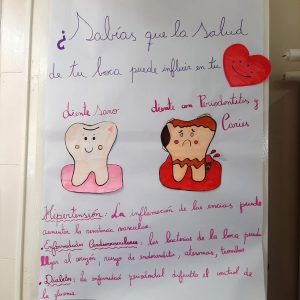 ¿Sabías que la salud
de tu boca puede influir en tu
diente sano
diente con Periodontitis y
Caries
Hipertensión: La inflamación de las encías puede
aumentar la resistencia vascular.
• Enfermedades Cardiovasculares: las bacterias de la boca puede
llegar al corazón, riesgo de endocarditis, ateromas, trombos
• Diabetes: la enfermedad periodontal dificulta el control de
la glucosa